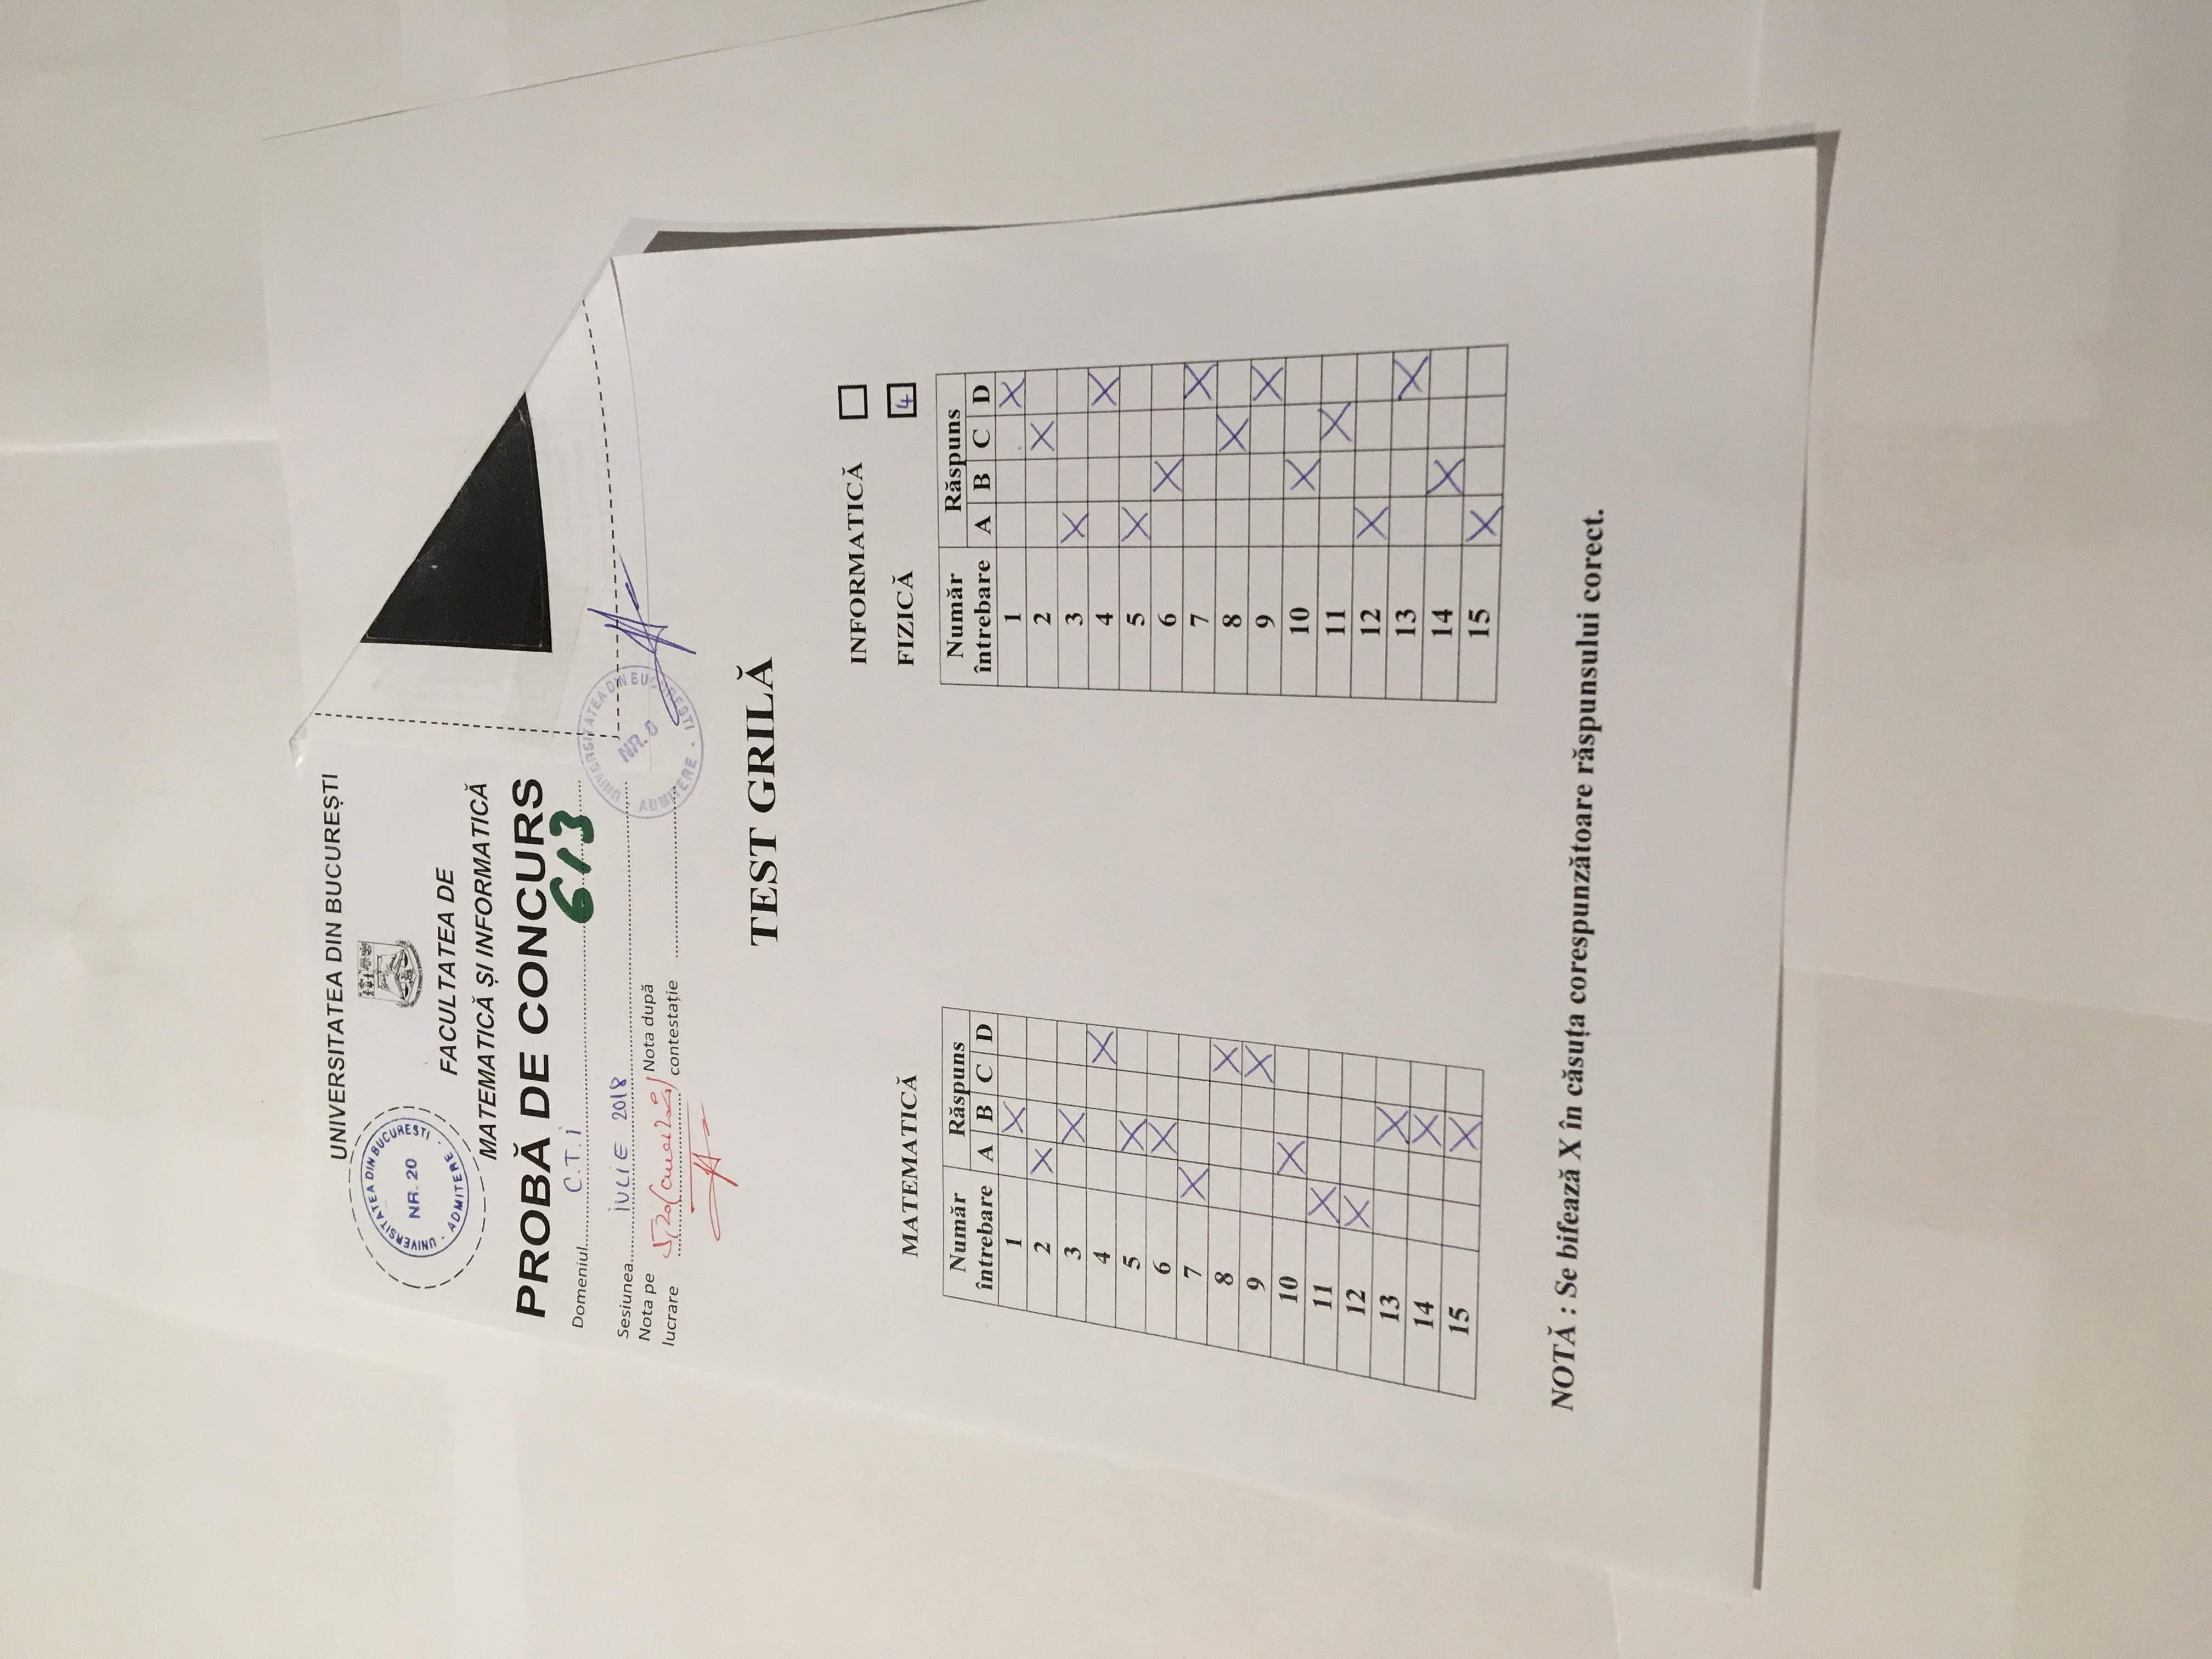 UNIVERSITATEA DIN BUCUREȘTI
UNIVERSITATEA DIN BUCUREȘTI
NR. 20
ADMITERE
FACULTATEA DE
MATEMATICĂ ȘI INFORMATICĂ
PROBĂ DE CONCURS
613
Domeniul C.T.i
Sesiunea iULiE 2018
Nota pe lucrare 5,20
Nota după contestație
UNIVERSITATEA DIN BUCUREȘTI
ADMITERE
TEST GRILĂ
INFORMATICĂ
FIZICĂ 4
MATEMATICĂ
Număr întrebare Răspuns
A B C D
1 X
2 X
3 X
4 X
5 X
6 X
7 X
8 X
9 X
10 X
11 X
12 X
13 X
14 X
15 X
Număr întrebare Răspuns
A B C D
1 X
2 X
3 X
4 X
5 X
6 X
7 X
8 X
9 X
10 X
11 X
12 X
13 X
14 X
15 X
NOTĂ : Se bifează X în căsuța corespunzătoare răspunsului corect.